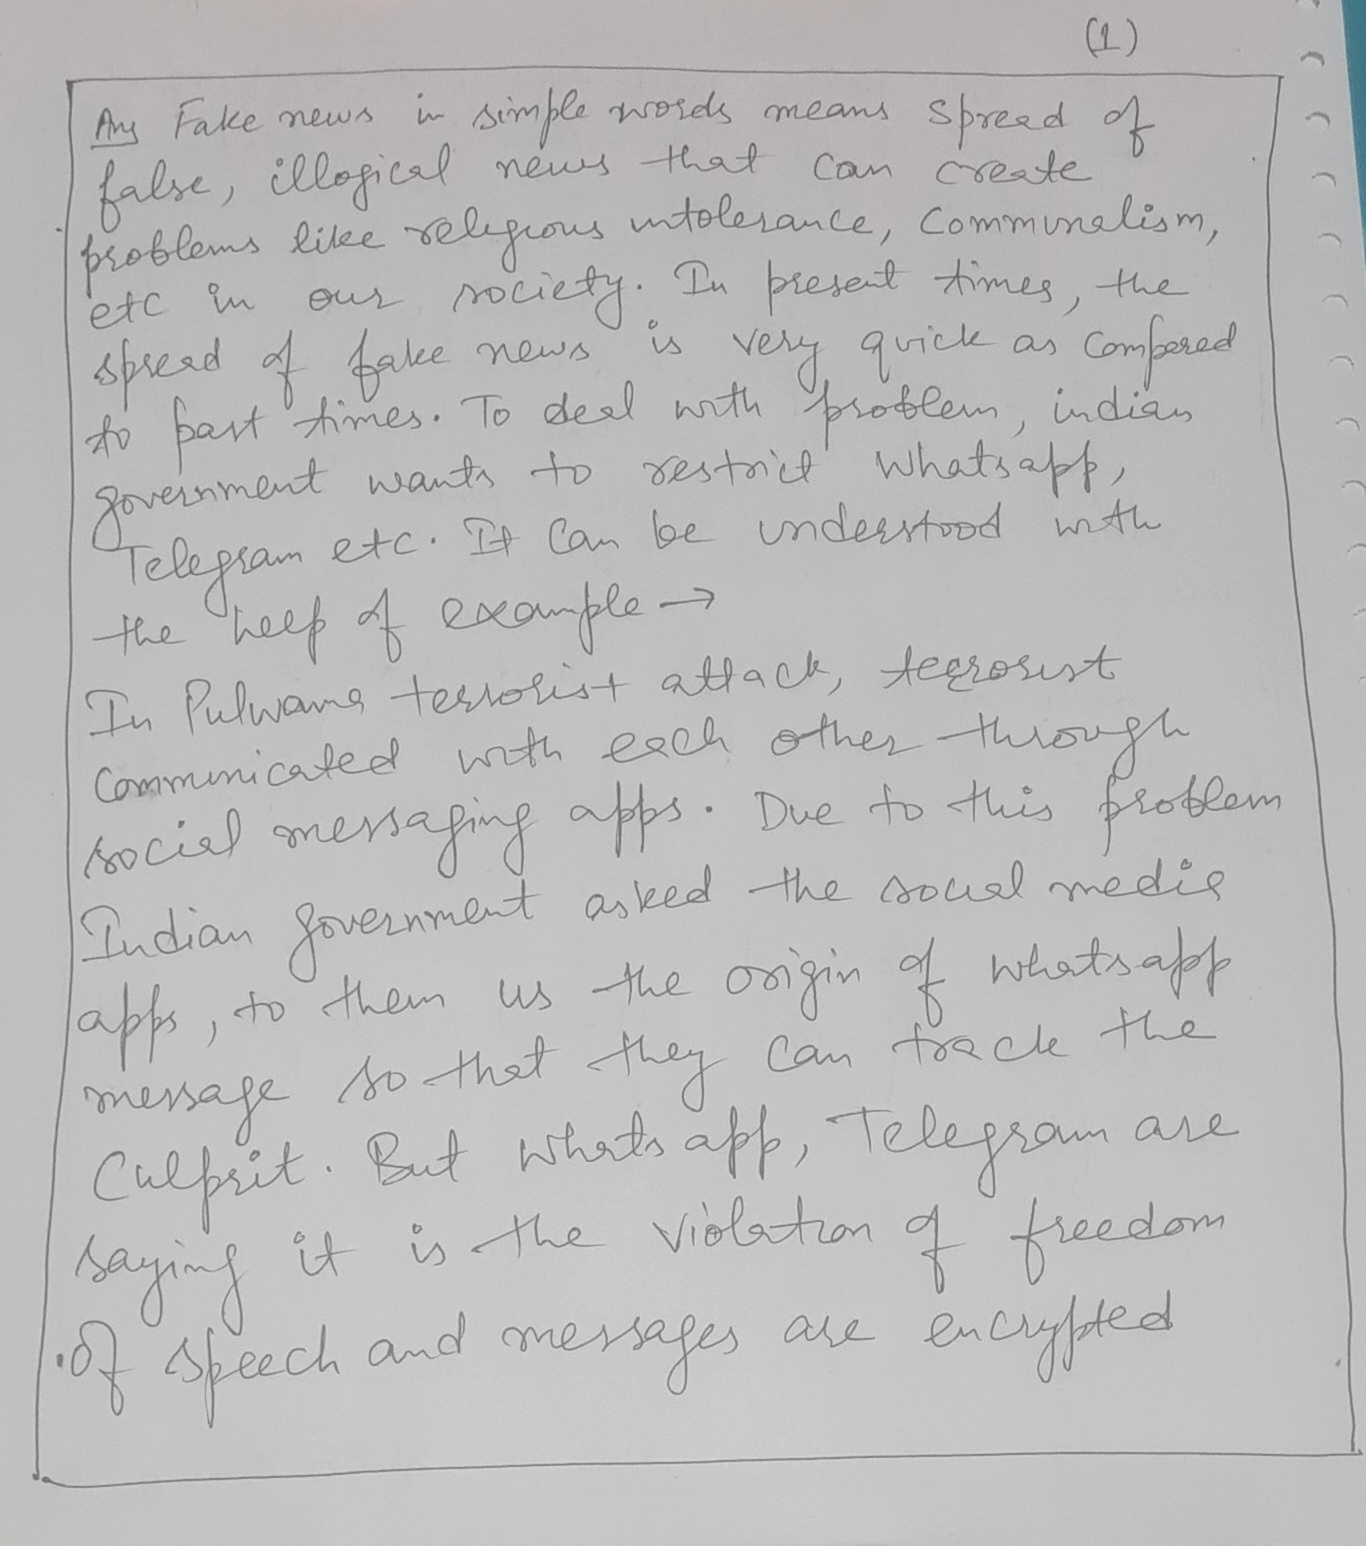 (1)
Ans Fake news in simple words means spread of
false, illogical news that can create
problems like religious intolerance, Communalism,
etc in our society. In present times, the
spread of fake news is very quick as compared
to past times. To deal with problem, indian
government wants to restrict whatsapp,
Telegram etc. It can be understood with
the help of example →
In Pulwama terrorist attack, terrorist
Communicated with each other through
social messaging apps. Due to this problem
Indian government asked the social media
apps, to them us the origin of whatsapp
message so that they can track the
Culprit. But whats app, Telegram are
saying it is the violation of freedom
of speech and messages are encrypted